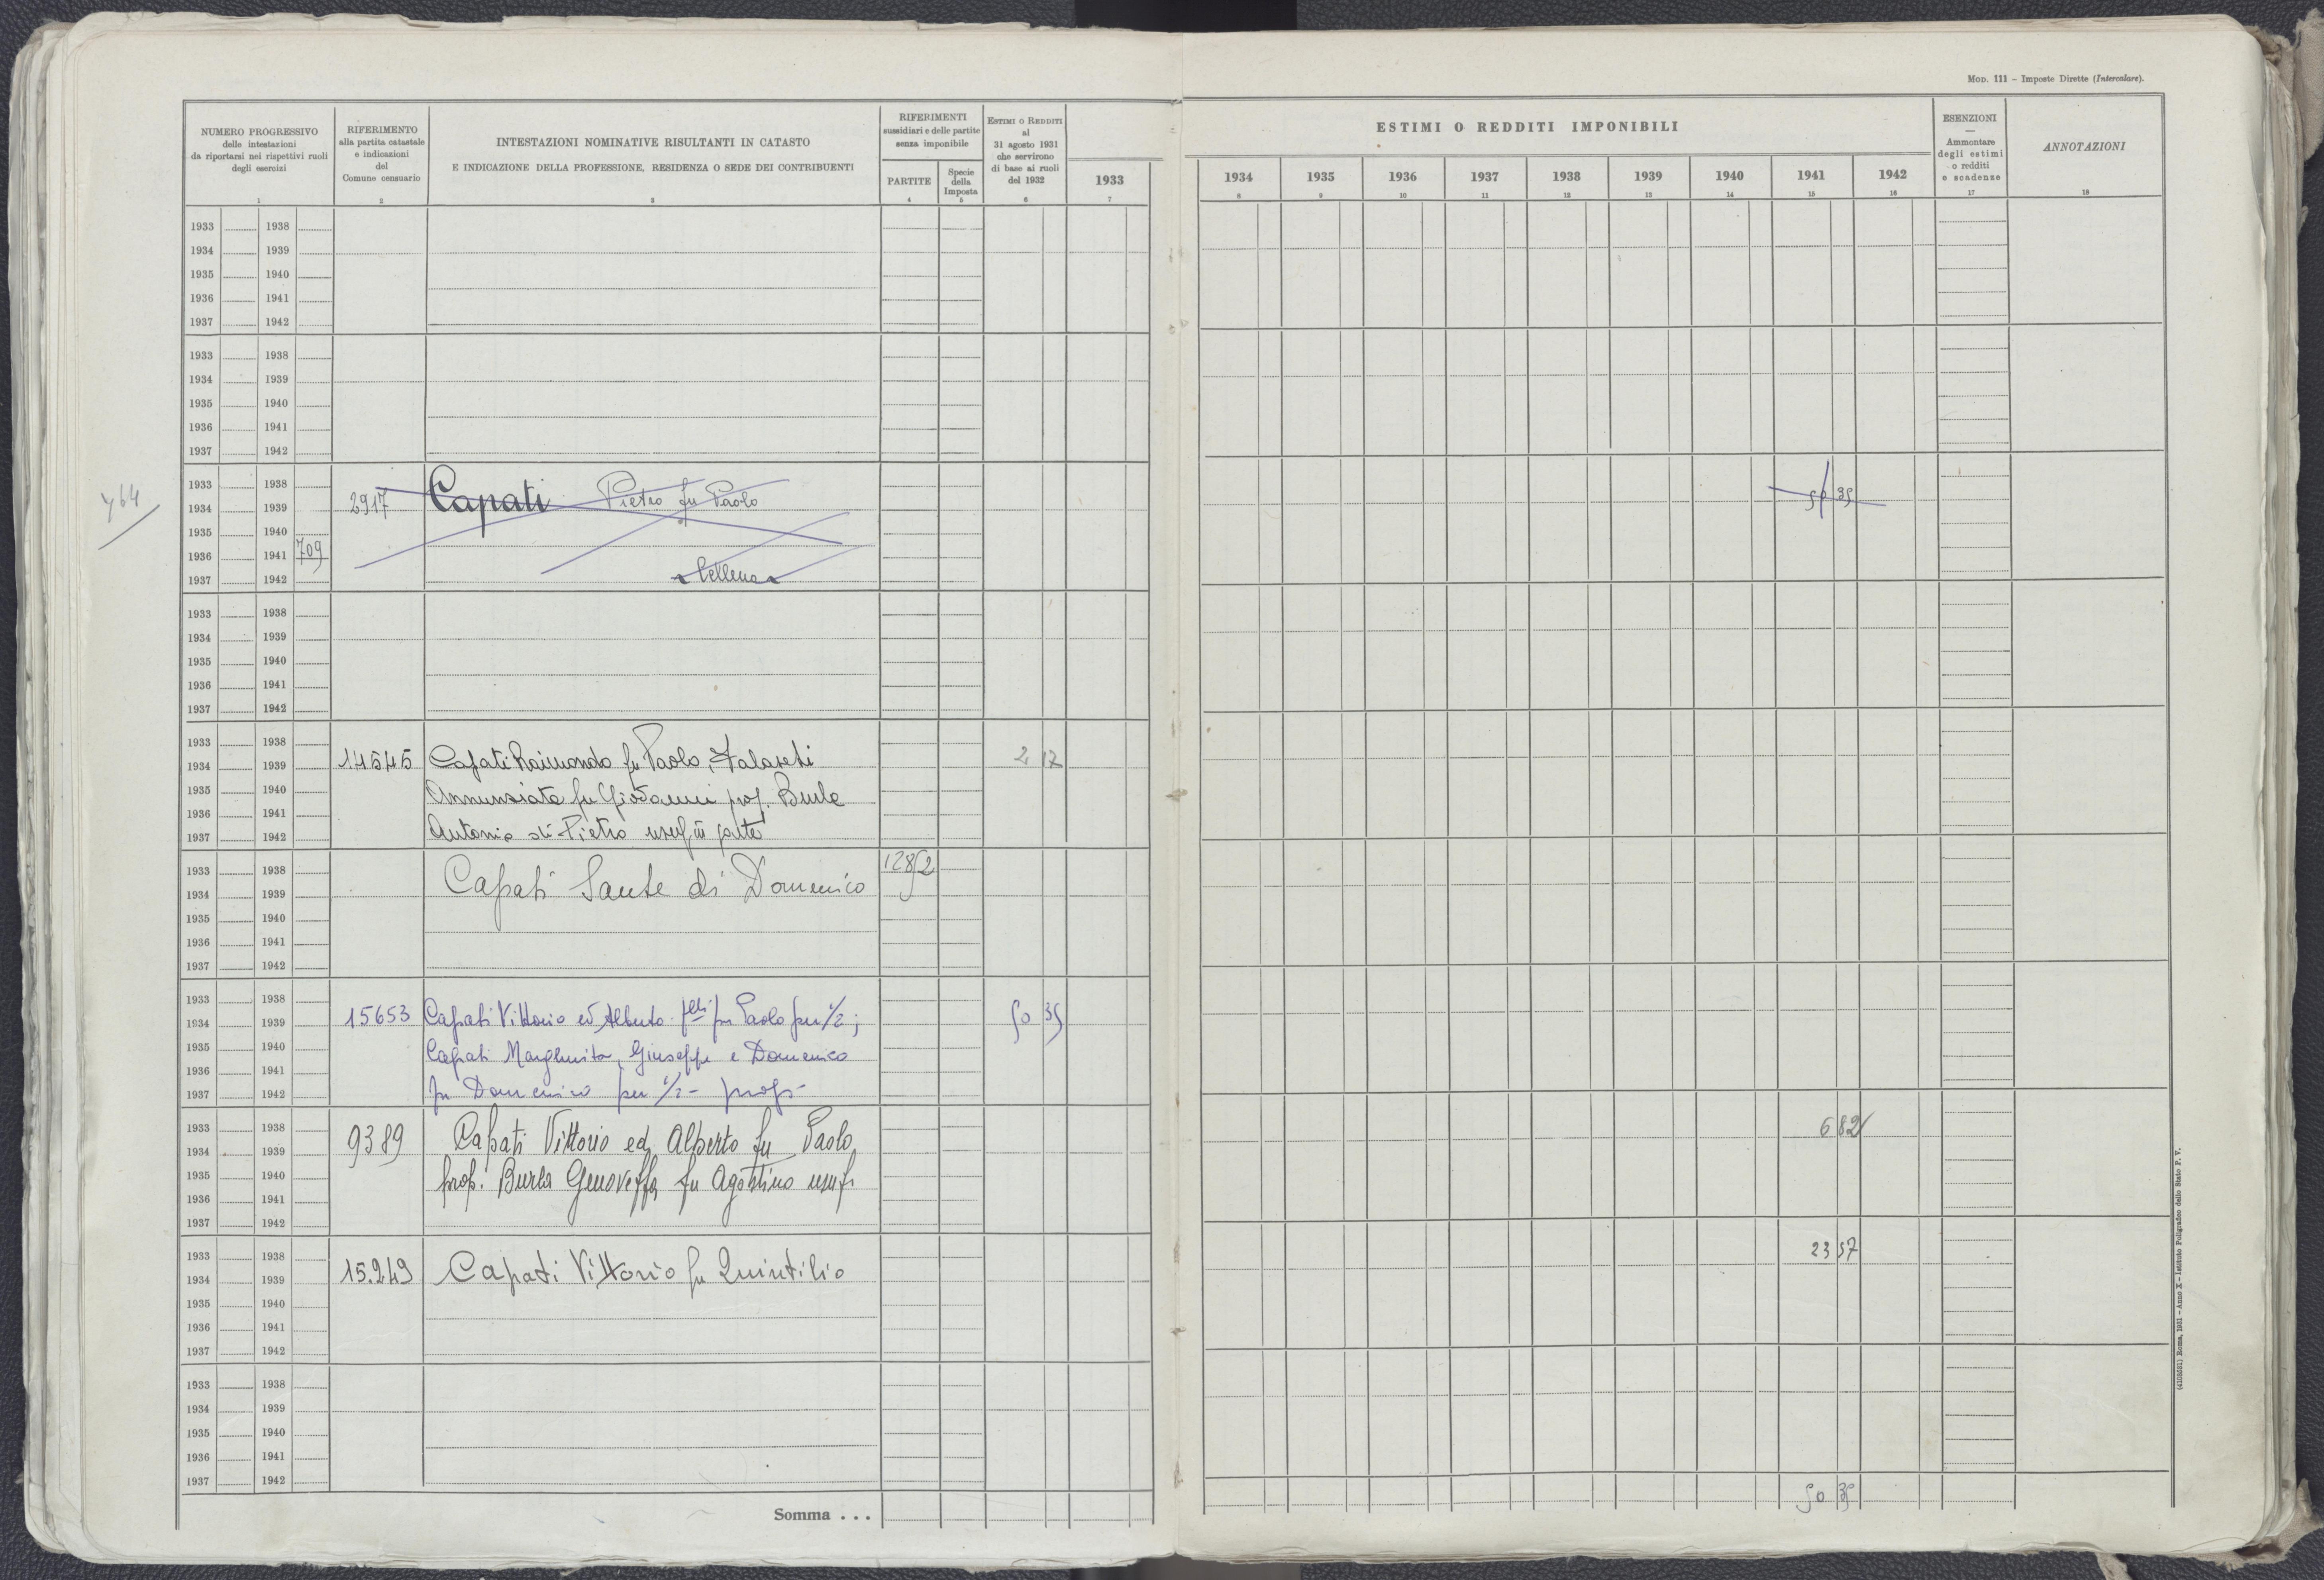 MOD. 111 – Imposte Dirette (Intercalare).
NUMERO PROGRESSIVO
delle intestazioni
da riportarsi nei rispettivi ruoli
degli esercizi
1
RIFERIMENTO
alla partita catastale
e indicazioni
del
Comune censuario
2
INTESTAZIONI NOMINATIVE RISULTANTI IN CATASTO
E INDICAZIONE DELLA PROFESSIONE, RESIDENZA O SEDE DEI CONTRIBUENTI
3
RIFERIMENTI
sussidiari e delle partite
senza imponibile
PARTITE
4
Specie
della
Imposta
5
ESTIMI O REDDITI
al
31 agosto 1931
che servirono
di base ai ruoli
del 1932
6
1933
7
ESTIMI O REDDITI IMPONIBILI
1934 1935 1936 1937 1938 1939 1940 1941 1942
8 9 10 11 12 13 14 15 16
ESENZIONI
—
Ammontare
degli estimi
o redditi
e scadenze
17
ANNOTAZIONI
18
1933 1938
1934 1939
1935 1940
1936 1941
1937 1942
1933 1938
1934 1939
1935 1940
1936 1941
1937 1942
764
1933 1938
1934 1939 2917 Capati Pietro fu Paolo 50 35
1935 1940
1936 1941 709
1937 1942
1933 1938
1934 1939
1935 1940
1936 1941
1937 1942
1933 1938
1934 1939 14545 Capati Raimondo fu Paolo, 2 17
1935 1940
1936 1941 Annunziata fu Giovanni prop. Burla
1937 1942 Antonio di Pietro usuf. in parte
1933 1938 12852
1934 1939 Capati Sante di Domenico
1935 1940
1936 1941
1937 1942
1933 1938
1934 1939 15653 Capati Vittorio ed Alberto flli fu Paolo per 1/2; 50 35
1935 1940 Capati Margherita, Giuseppe e Domenico
1936 1941
1937 1942 fu Domenico per 1/2 - prop-
1933 1938 6 82
1934 1939 9389 Capati Vittorio ed Alberto fu Paolo
1935 1940 prop. Burla Genoveffa fu Agostino usuf.
1936 1941
1937 1942
1933 1938 23 57
1934 1939 15.249 Capati Vittorio fu Quintilio
1935 1940
1936 1941
1937 1942
1933 1938
1934 1939
1935 1940
1936 1941
1937 1942
Somma . . . 50 35
(4103681) Roma, 1931 – Anno X – Istituto Poligrafico dello Stato P. V.